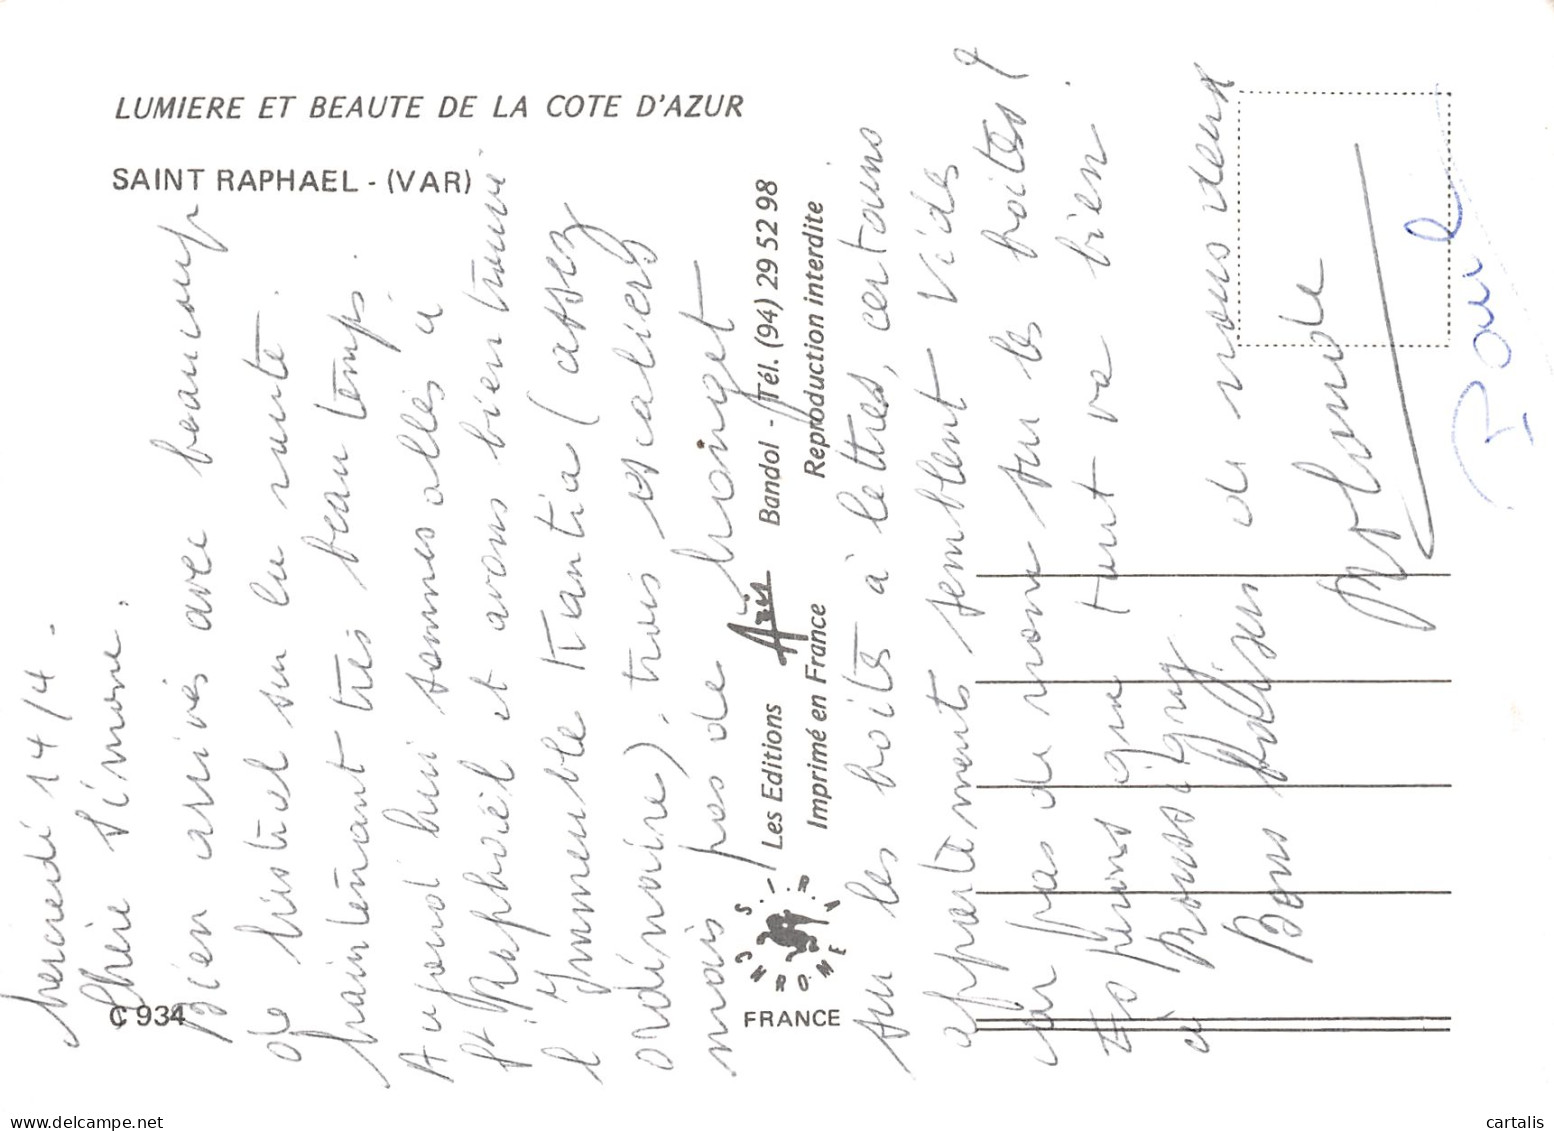 LUMIERE ET BEAUTE DE LA COTE D'AZUR
SAINT RAPHAEL - (VAR)
C 934
Les Editions Aris Bandol - Tél. (94) 29 52 98
Imprimé en France Reproduction interdite
S.I.R.A CHROME
FRANCE
Mercredi 14/4.
Chère Simone,
Bien arrivés avec beaucoup
de Mistral sur la route.
Maintenant très beau temps.
Aujourd'hui sommes allés à
St Raphaël et avons bien trouvé
l'Immeuble Kantia (assez
ordinaire). trois escaliers
mais pas de
sur les boites à lettres, certains
appartements semblent vides
car pas de nom sur les boites ?
Espérons que tout va bien
à
Bons baisers de nous deux
Yolande